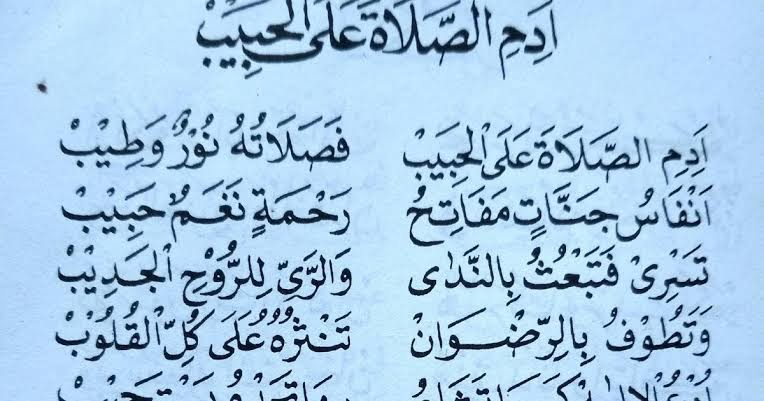 اَدِمِ الصَّلَاةَ عَلَى الْحَبِيْبْ
اَدِمِ الصَّلَاةَ عَلَى الْحَبِيْبْ فَصَلَاتُهُ نُوْرٌ وَطِيْبْ
اَنْفَاسُ جَنَّاتٍ مَفَاتِحُ رَحْمَةٍ نَغَمٌ حَبِيْبْ
تَسْرِىْ فَتَبْعَثُ بِالنَّدَى وَالرَّيِّ لِلرُّوْحِ الْجَدِيْبْ
وَتَطُوْفُ بِالرِّضْوَانْ تَنْثُرُهُ عَلَى كُلِّ الْقُلُوْبْ